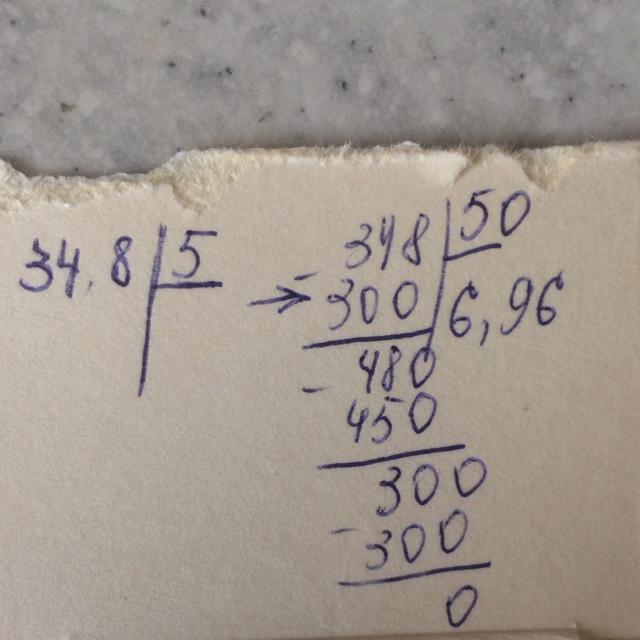 34,8 5
→ - 348 50
300 6,96
- 480
450
300
- 300
0